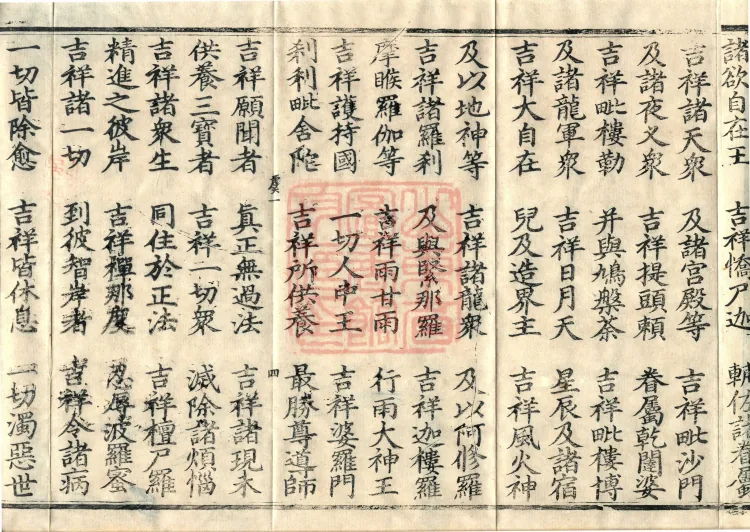 諸欲自在王 吉祥憍尸迦 輔佐諸眷屬
吉祥諸天衆 及諸宮殿等 吉祥毗沙門
及諸夜叉衆 吉祥提頭頼 眷屬乾闥婆
吉祥毗樓勒 并與鳩槃荼 吉祥毗樓博
及諸龍軍衆 吉祥日月天 星辰及諸宿
吉祥大自在 兒及造界主 吉祥風火神
及以地神等 吉祥諸龍衆 及以何修羅
吉祥諸羅刹 及與緊那羅 吉祥迦樓羅
摩睺羅伽等 吉祥雨甘雨 行雨大神王
吉祥護持國 一切人中王 吉祥婆羅門
刹利毗舍陀 吉祥所供養 最勝尊導師
虞一 四
吉祥願聞者 真正無過法 吉祥諸現未
供養三寶者 吉祥一切衆 滅除諸煩惱
吉祥諸衆生 同住於正法 吉祥檀尸羅
精進之彼岸 吉祥禪那度 忍辱波羅蜜
吉祥諸一切 到彼智岸者 吉祥令諸病
一切皆除愈 吉祥皆休息 一切濁惡世